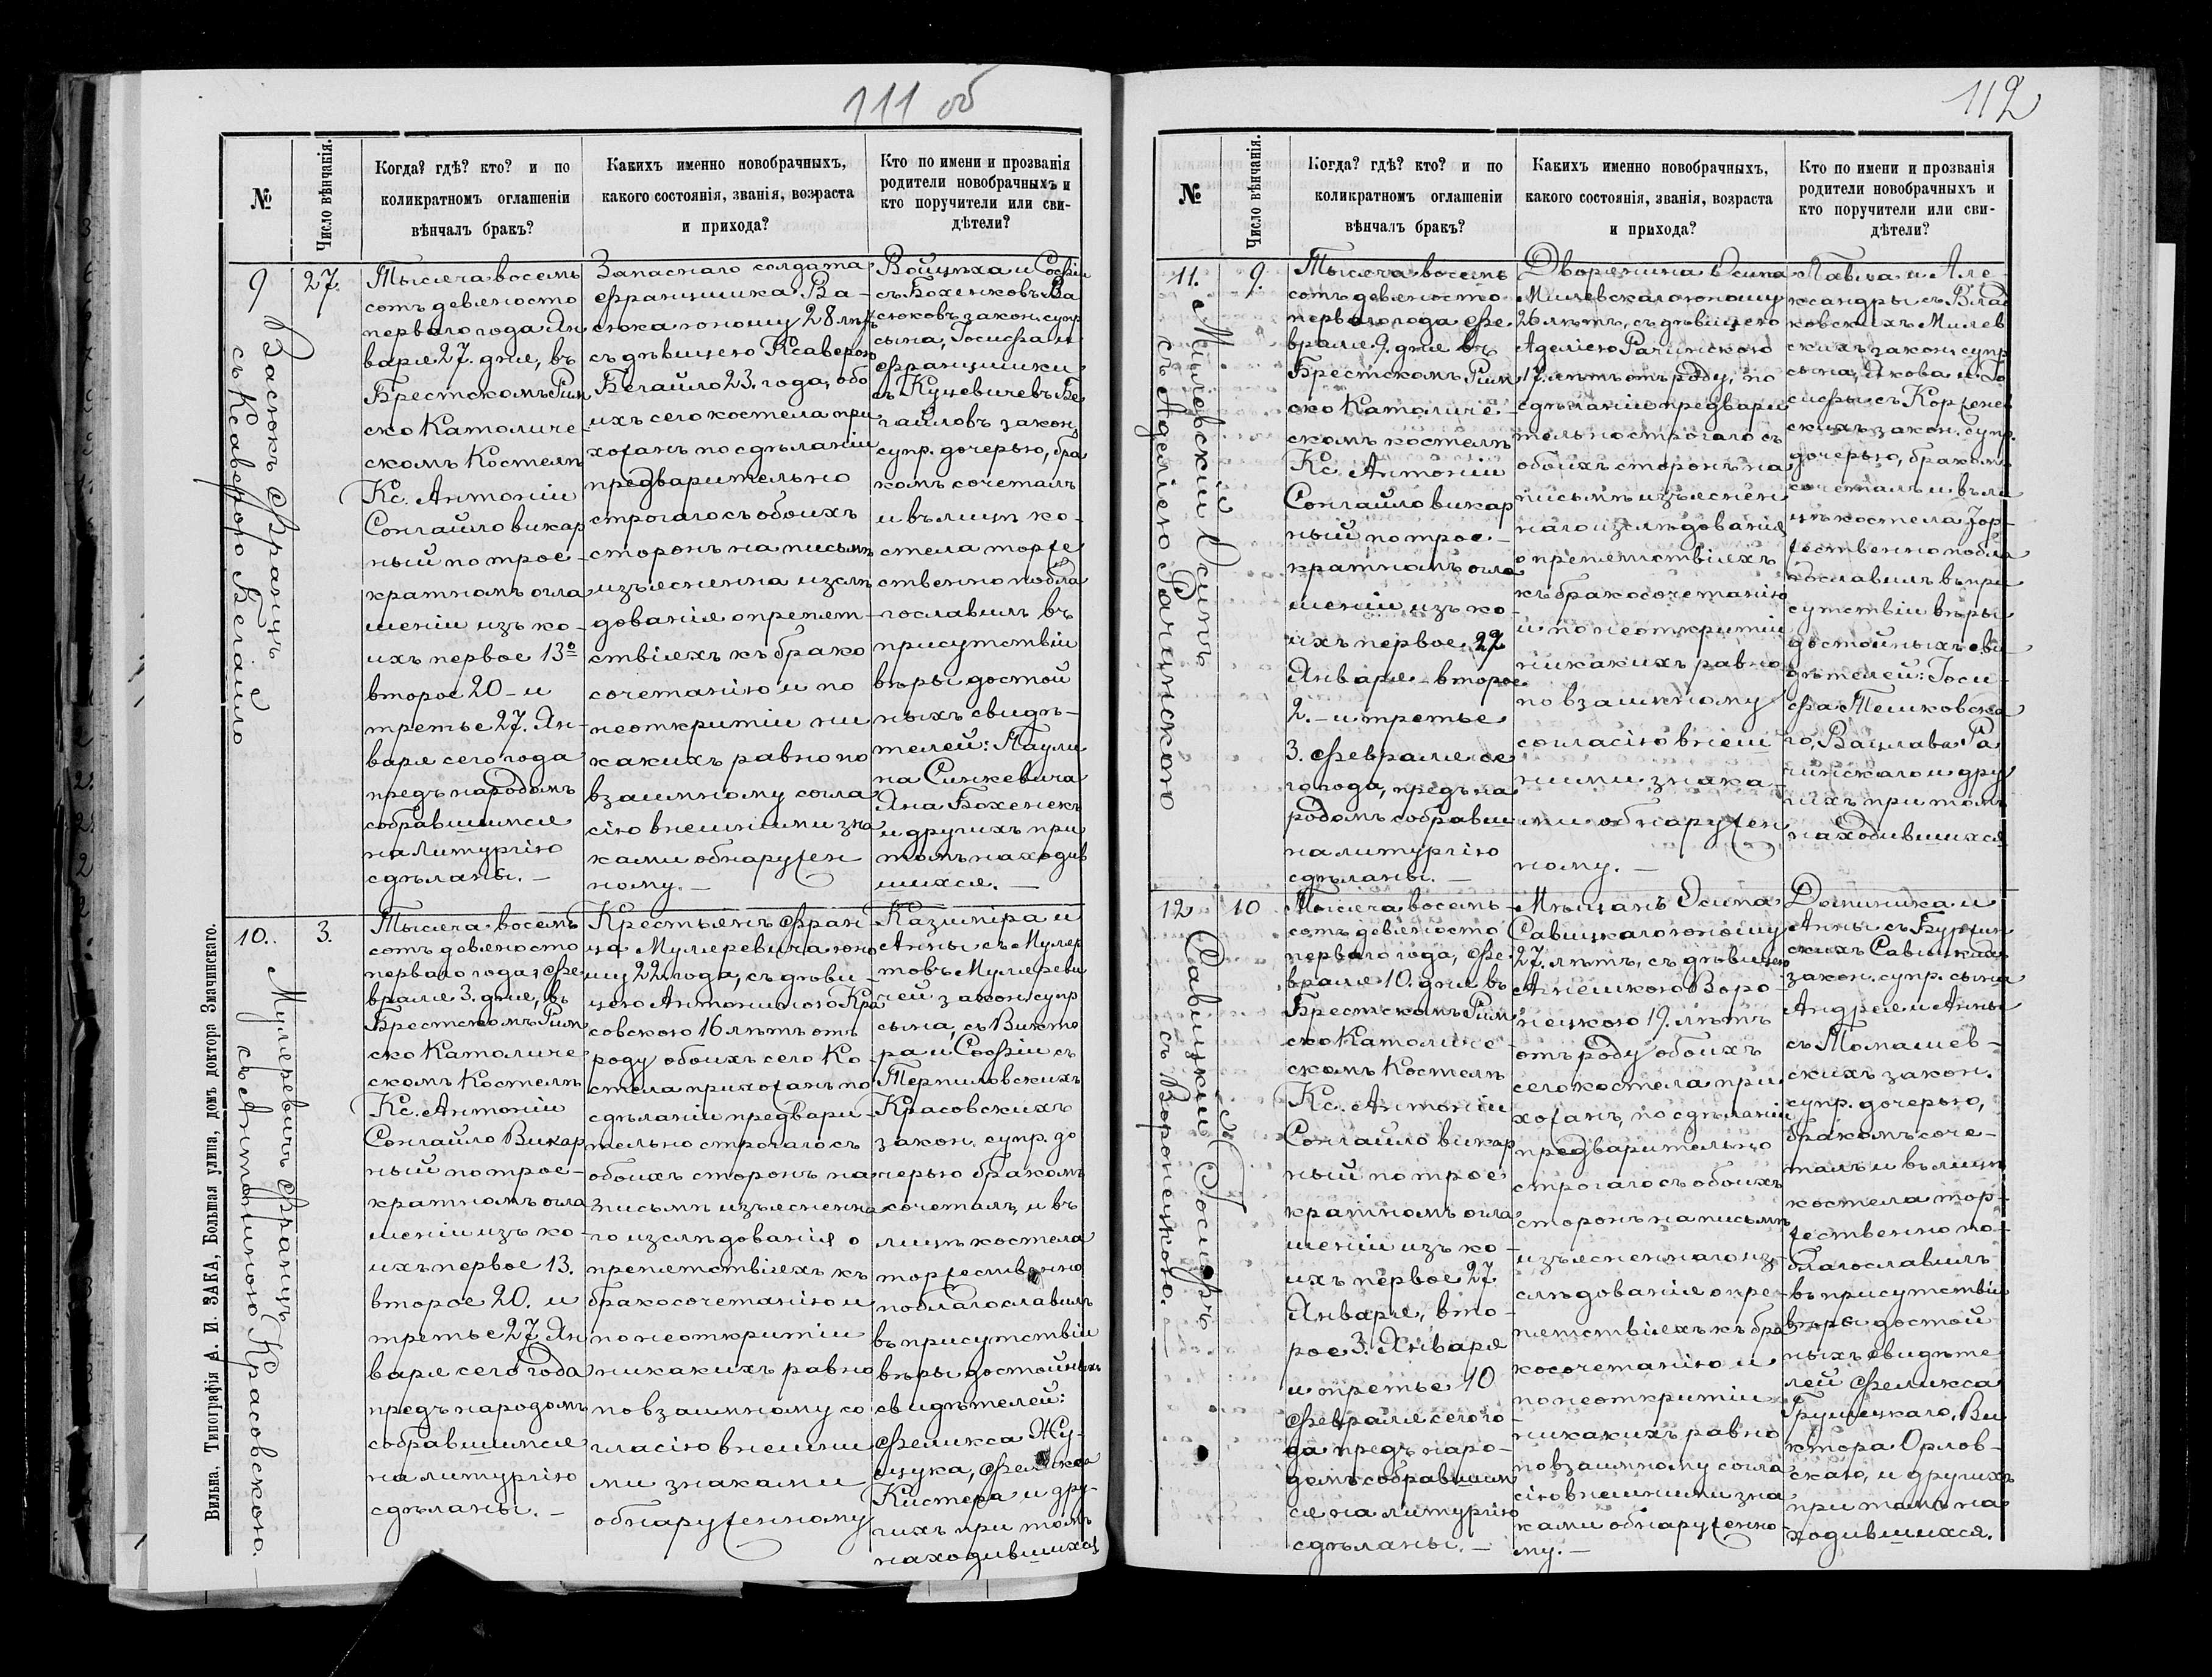 111 об
№
Число вѣнчанія.
Когда? гдѣ? кто? и по
коликратномъ оглашеніи
вѣнчалъ бракъ?
Какихъ именно новобрачныхъ,
какого состоянія, званія, возраста
и прихода?
Кто по имени и прозванія
родители новобрачныхъ и
кто поручители или сви-
дѣтели?
9
Васюкъ Францъ
съ Ксаверою Бегайло
27.
Тысяча восемь
сотъ девяносто
перваго года Ян
варя 27. дня, въ
Брестскомъ Рим
ско Католиче
скомъ Костелѣ
Кс. Антоній
Сонгайло викар
ный по трое-
кратномъ огла
шеніи изъ ко-
ихъ первое 13º
второе 20 - и
третье 27. Ян-
варя сего года
предъ народомъ
собравшимся
на Литургію
сдѣланы. -
Запаснаго солдата
Францишка Ва-
сюка юношу 28 лѣтъ
съ дѣвицею Ксаверою
Бегайло 23. года, обо
ихъ сего костела при
хожанъ по сдѣланіи
предварительно
строгаго съ обоихъ
сторонъ на письмѣ
изъясненна изслѣ
дованія о препят-
ствіяхъ къ брако
сочетанію и по
неоткритіи ни
какихъ равно по
взаимному согла
сію внешними зна
ками обнаружен
ному. -
Войцѣха и Софіи
съ Бохенковъ Ва
сюковъ закон. супр
сына, Іосифа и
Францишки
съ Куцевичевъ Бе
гайловъ закон,
супр. дочерью, бра
комъ сочеталъ
и въ лицѣ ко-
стела торже
ственно побла
гославилъ въ
присутствіи
вѣры достой
ныхъ свидѣ-
телей: Паули
на Синкевича
Яна Бохенекъ
и другихъ при
томъ находив
шихся. -
10.
Муллеревичъ Францъ
съ Антониною Красовскою.
3.
Тысяча восемь
сотъ девяносто
перваго года, Фе
враля 3. дня, въ
Брестскомъ Рим
ско Католиче
скомъ Костелѣ
Кс. Антоній
Сонгайло Викар
ный по трое-
кратномъ огла
шеніи изъ ко-
ихъ первое 13.
второе 20. и
третье 27 Ян
варя сего года
предъ народомъ
собравшимся
на литургію
сдѣланы. -
Крестьянъ Фран
ца Муллеревича юно
шу 22 года, съ дѣви-
цею Антониною Кра
совскою 16 лѣтъ отъ
роду обоихъ сего Ко
стела прихожанъ по
сдѣланіи предвари-
тельно строгаго съ
обоихъ сторонъ на
письмѣ изъясненна
го изслѣдованія о
препятствіяхъ къ
бракосочетанію и
по неоткритіи
никакихъ равно
по взаимному со
гласію внешни
ми знаками
обнаруженному
Казиміра и
Анны съ Мулер
товъ Муллереви
чей закон. супр
сына, съ Викто
ра и Софіи съ
Терпиловскихъ
Красовскихъ
закон. супр. до
черью бракомъ
сочеталъ, и въ
лицѣ костела
торжественно
поблагославилъ
въ присутствіи
вѣры достойныхъ
свидѣтелей:
Феликса Жу-
щука, Феликса
Кистера и дру-
гихъ при томъ
находившихся
Вильна, Типографія А. И. ЗАКА, Большая улица, домъ доктора Змачинскаго.
112
№
Число вѣнчанія.
Когда? гдѣ? кто? и по
коликратномъ оглашеніи
вѣнчалъ бракъ?
Какихъ именно новобрачныхъ,
какого состоянія, званія, возраста
и прихода?
Кто по имени и прозванія
родители новобрачныхъ и
кто поручители или сви-
дѣтели?
11.
Милевскій Осипъ
съ Аделіею Рачинскою
9.
Тысяча восемь
сотъ девяносто
перваго года Фе
враля 9. дня въ
Брестскомъ Рим
ско Католиче-
скомъ костелѣ
Кс. Антоній
Сонгайло викар
ный по трое-
кратномъ огла
шеніи изъ ко-
ихъ первое 27
Января - второе
2. - и третье
3. Февраля се
го года, предъ на
родомъ собравш
на литургію
сдѣланы. -
Дворянина Осипа
Милевскаго юношу
26 лѣтъ, съ дѣвицею
Аделіею Рачинскою
17. лѣтъ отъ роду, по
сдѣланіи предвари
тельно строгаго съ
обоихъ сторонъ на
письмѣ изъяснен
наго изслѣдованія
о препятствіяхъ
къ бракосочетанію
и по неоткритіи
никакихъ равно
по взаимному
согласію внеш
ними знака-
ми обнаружен
ному. -
Павла и Але-
ксандры съ Влад
ковскихъ Милев
скихъ закон. супр
сына, Якова и Іо
сифы съ Корженев
скихъ закон. супр.
дочерью, бракомъ
сочеталъ и въ ли
цѣ костела тор-
жественно побла
гославилъ въ при
сутствіи вѣры
достойныхъ сви
дѣтелей: Іоси-
фа Тешковска
го, Вацлава Ра
чинскаго и дру
гихъ при томъ
находившихся
12
Савицкій Іосифъ
съ Воронецкою.
10
Тысяча восемь
сотъ девяносто
перваго года, Фе
враля 10. дня въ
Брестскомъ Рим
ско Католиче
скомъ Костелѣ
Кс. Антоній
Сонгайло викар
ный по трое
кратномъ огла
шеніи изъ ко-
ихъ первое 27.
Января, вто-
рое 3. Января
и третье 10
Февраля сего го-
да предъ наро-
домъ собравшим
ся на литургію
сдѣланы. -
Мѣщанъ Осипа
Савицкаго юношу
27. лѣтъ, съ дѣвицею
Анешкою Воро
нецкою 19. лѣтъ
отъ роду обоихъ
сего костела при
хожанъ, по сдѣланіи
предварительно
строгаго съ обоихъ
сторонъ на письмѣ
изъясненнаго из
слѣдованія о пре-
пятствіяхъ къ бра
косочетанію и
по неоткритіи
никакихъ равно
по взаимному согла
сію внешними зна
ками обнаруженно
му. -
Доминика и
скихъ Савицкихъ
закон. супр. сына
Андрея и Анны
съ Томашев-
скихъ закон.
супр. дочерью,
бракомъ соче-
талъ и въ лицѣ
костела тор-
жественно по-
благославилъ
въ присутствіи
вѣры достой
ныхъ свидѣте
лей Феликса
Грушецкаго, Ви
ктора Орлов-
скаго, и другихъ
при томъ на
ходившихся.